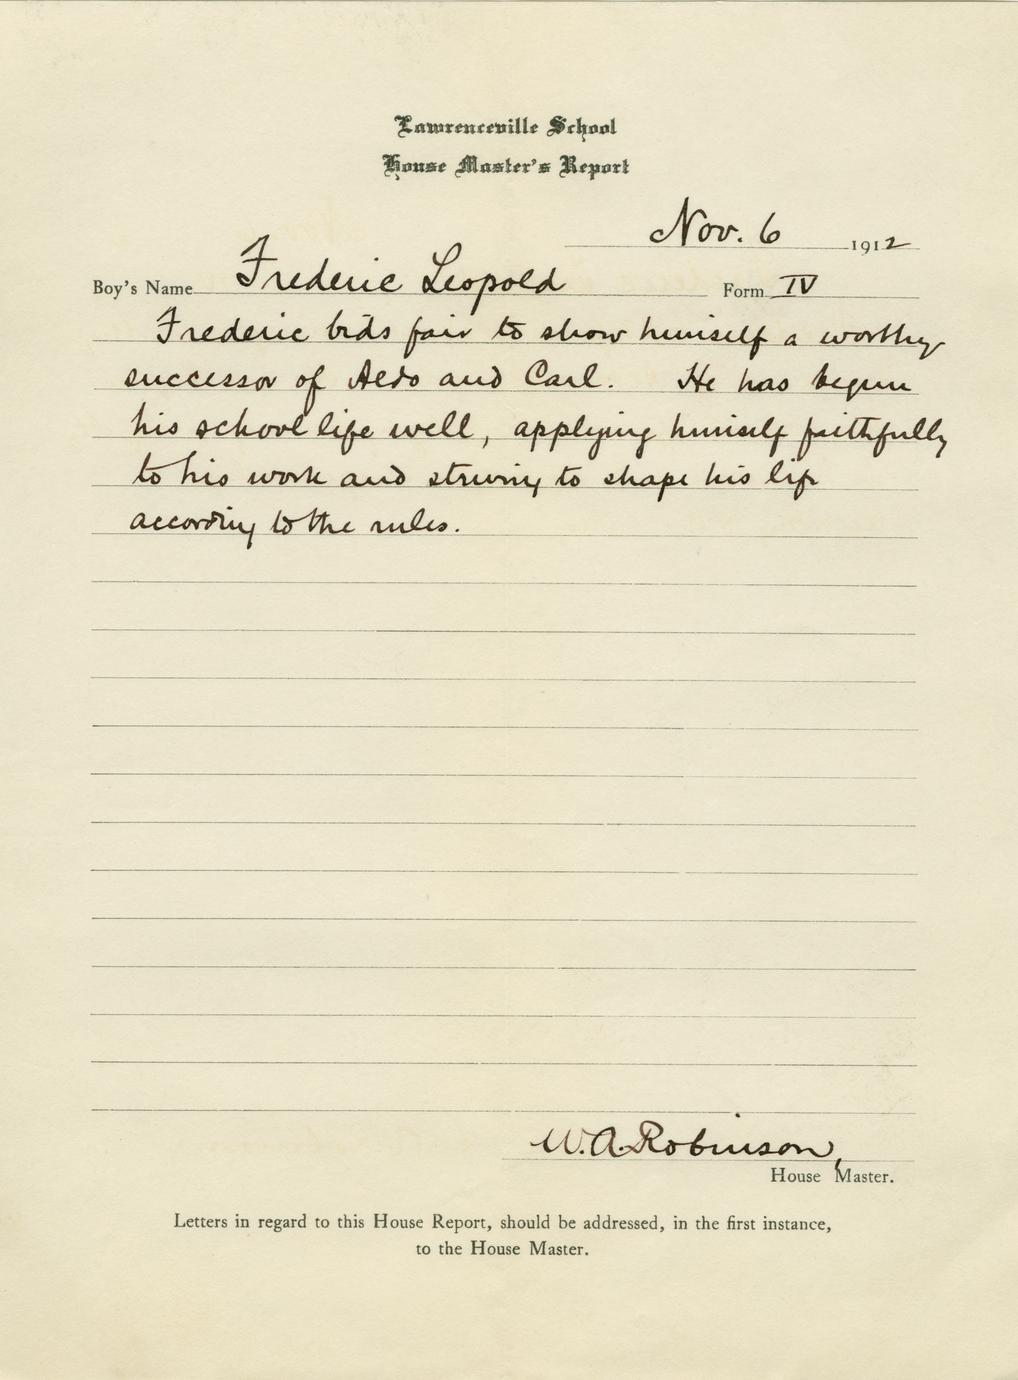 Lawrenceville School
House Master's Report
Nov. 6 1912
Boy's Name Frederic Leopold Form IV
Frederic bids fair to show himself a worthy
successor of Aldo and Carl. He has begun
his school life well, applying himself faithfully
to his work and striving to shape his life
according to the rules.
W.A. Robinson,
House Master.
Letters in regard to this House Report, should be addressed, in the first instance,
to the House Master.